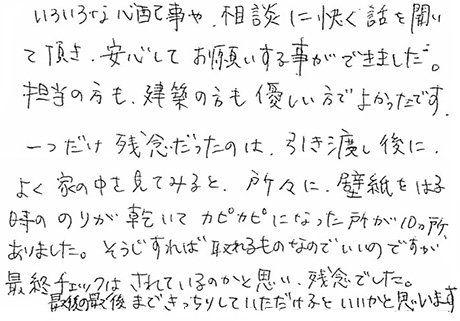 いろいろな心配事や、相談に快く話を聞い
て頂き、安心してお願いする事ができました。
担当の方も、建築の方も優しい方でよかったです。
一つだけ残念だったのは、引き渡し後に、
よく家の中を見てみると、所々に、壁紙をはる
時ののりが乾いてカピカピになった所が10ヶ所
ありました。そうじすれば取れるものなのでいいのですが
最終チェックはされているのかと思い、残念でした。
最後の最後まできっちりしていただけるといいかと思います